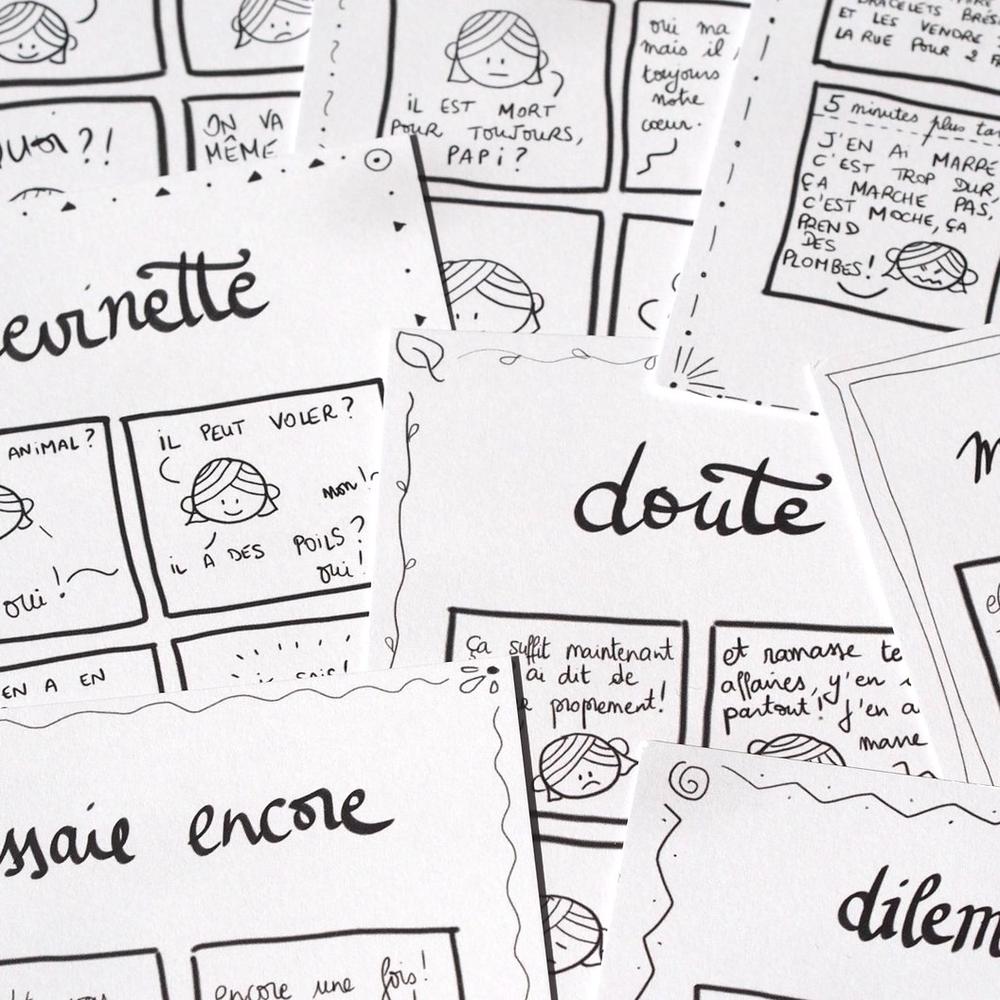 QUOI ?!
ON VA
MÊME
iL EST MORT
POUR TOUJOURS,
PAPi ?
oui ma
mais il
toujours
notre
cœur.
BRACELETS
ET LES VENDRE
LA RUE POUR 2
5 minutes plus
J'EN Ai MARRE
C'EST TROP DUR,
ÇA MARCHE PAS,
C'EST MOCHE, ÇA
PREND
DES
PLOMBES !
evinette
ANiMAL ?
oui !
iL PEUT VOLER ?
non !
iL À DES POiLS ?
oui !
EN A EN
doute
ça suffit maintenant
ai dit de
proprement !
et ramasse
affaires, y'en
partout ! j'en a
marre
ssaie encore
encore une fois !
dilem